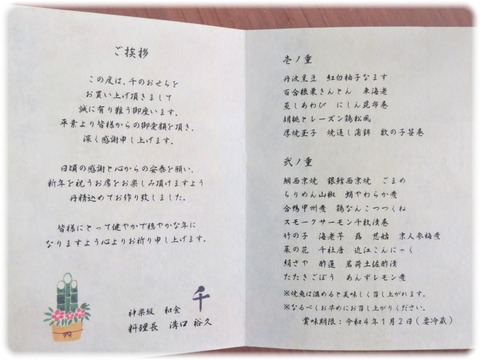 ご挨拶
この度は、千のおせちを
お買い上げ頂きまして
誠に有り難う御座います。
平素より皆様からの御愛顧を頂き、
深く感謝申し上げます。
日頃の感謝と心からの安泰を願い、
新年を祝うお席をお楽しみ頂けますよう
丹精込めてお作り致しました。
皆様にとって健やかで穏やかな年に
なりますよう心よりお祈り申し上げます。
神楽坂 和食 千
料理長 溝口 裕久
壱ノ重
丹波黒豆 紅白柚子なます
百合根栗きんとん 車海老
蒸しあわび にしん昆布巻
胡桃とレーズン鶏松風
厚焼玉子 焼通し蒲鉾 数の子笹巻
弐ノ重
鯛西京焼 銀鱈西京焼 ごまめ
ちりめん山椒 蛸やわらか煮
合鴨甲州煮 鶏なんこつつくね
スモークサーモン千枚漬巻
竹の子 海老芋 蕗 慈姑 京人参梅煮
菜の花 千社唐 近江こんにゃく
絹さや 酢蓮 茗荷土佐酢漬
たたきごぼう あんずレモン煮
※焼魚は温めると美味しく召し上がれます。
※なるべくお早めにお召し上がりください。
賞味期限：令和4年1月2日(要冷蔵)